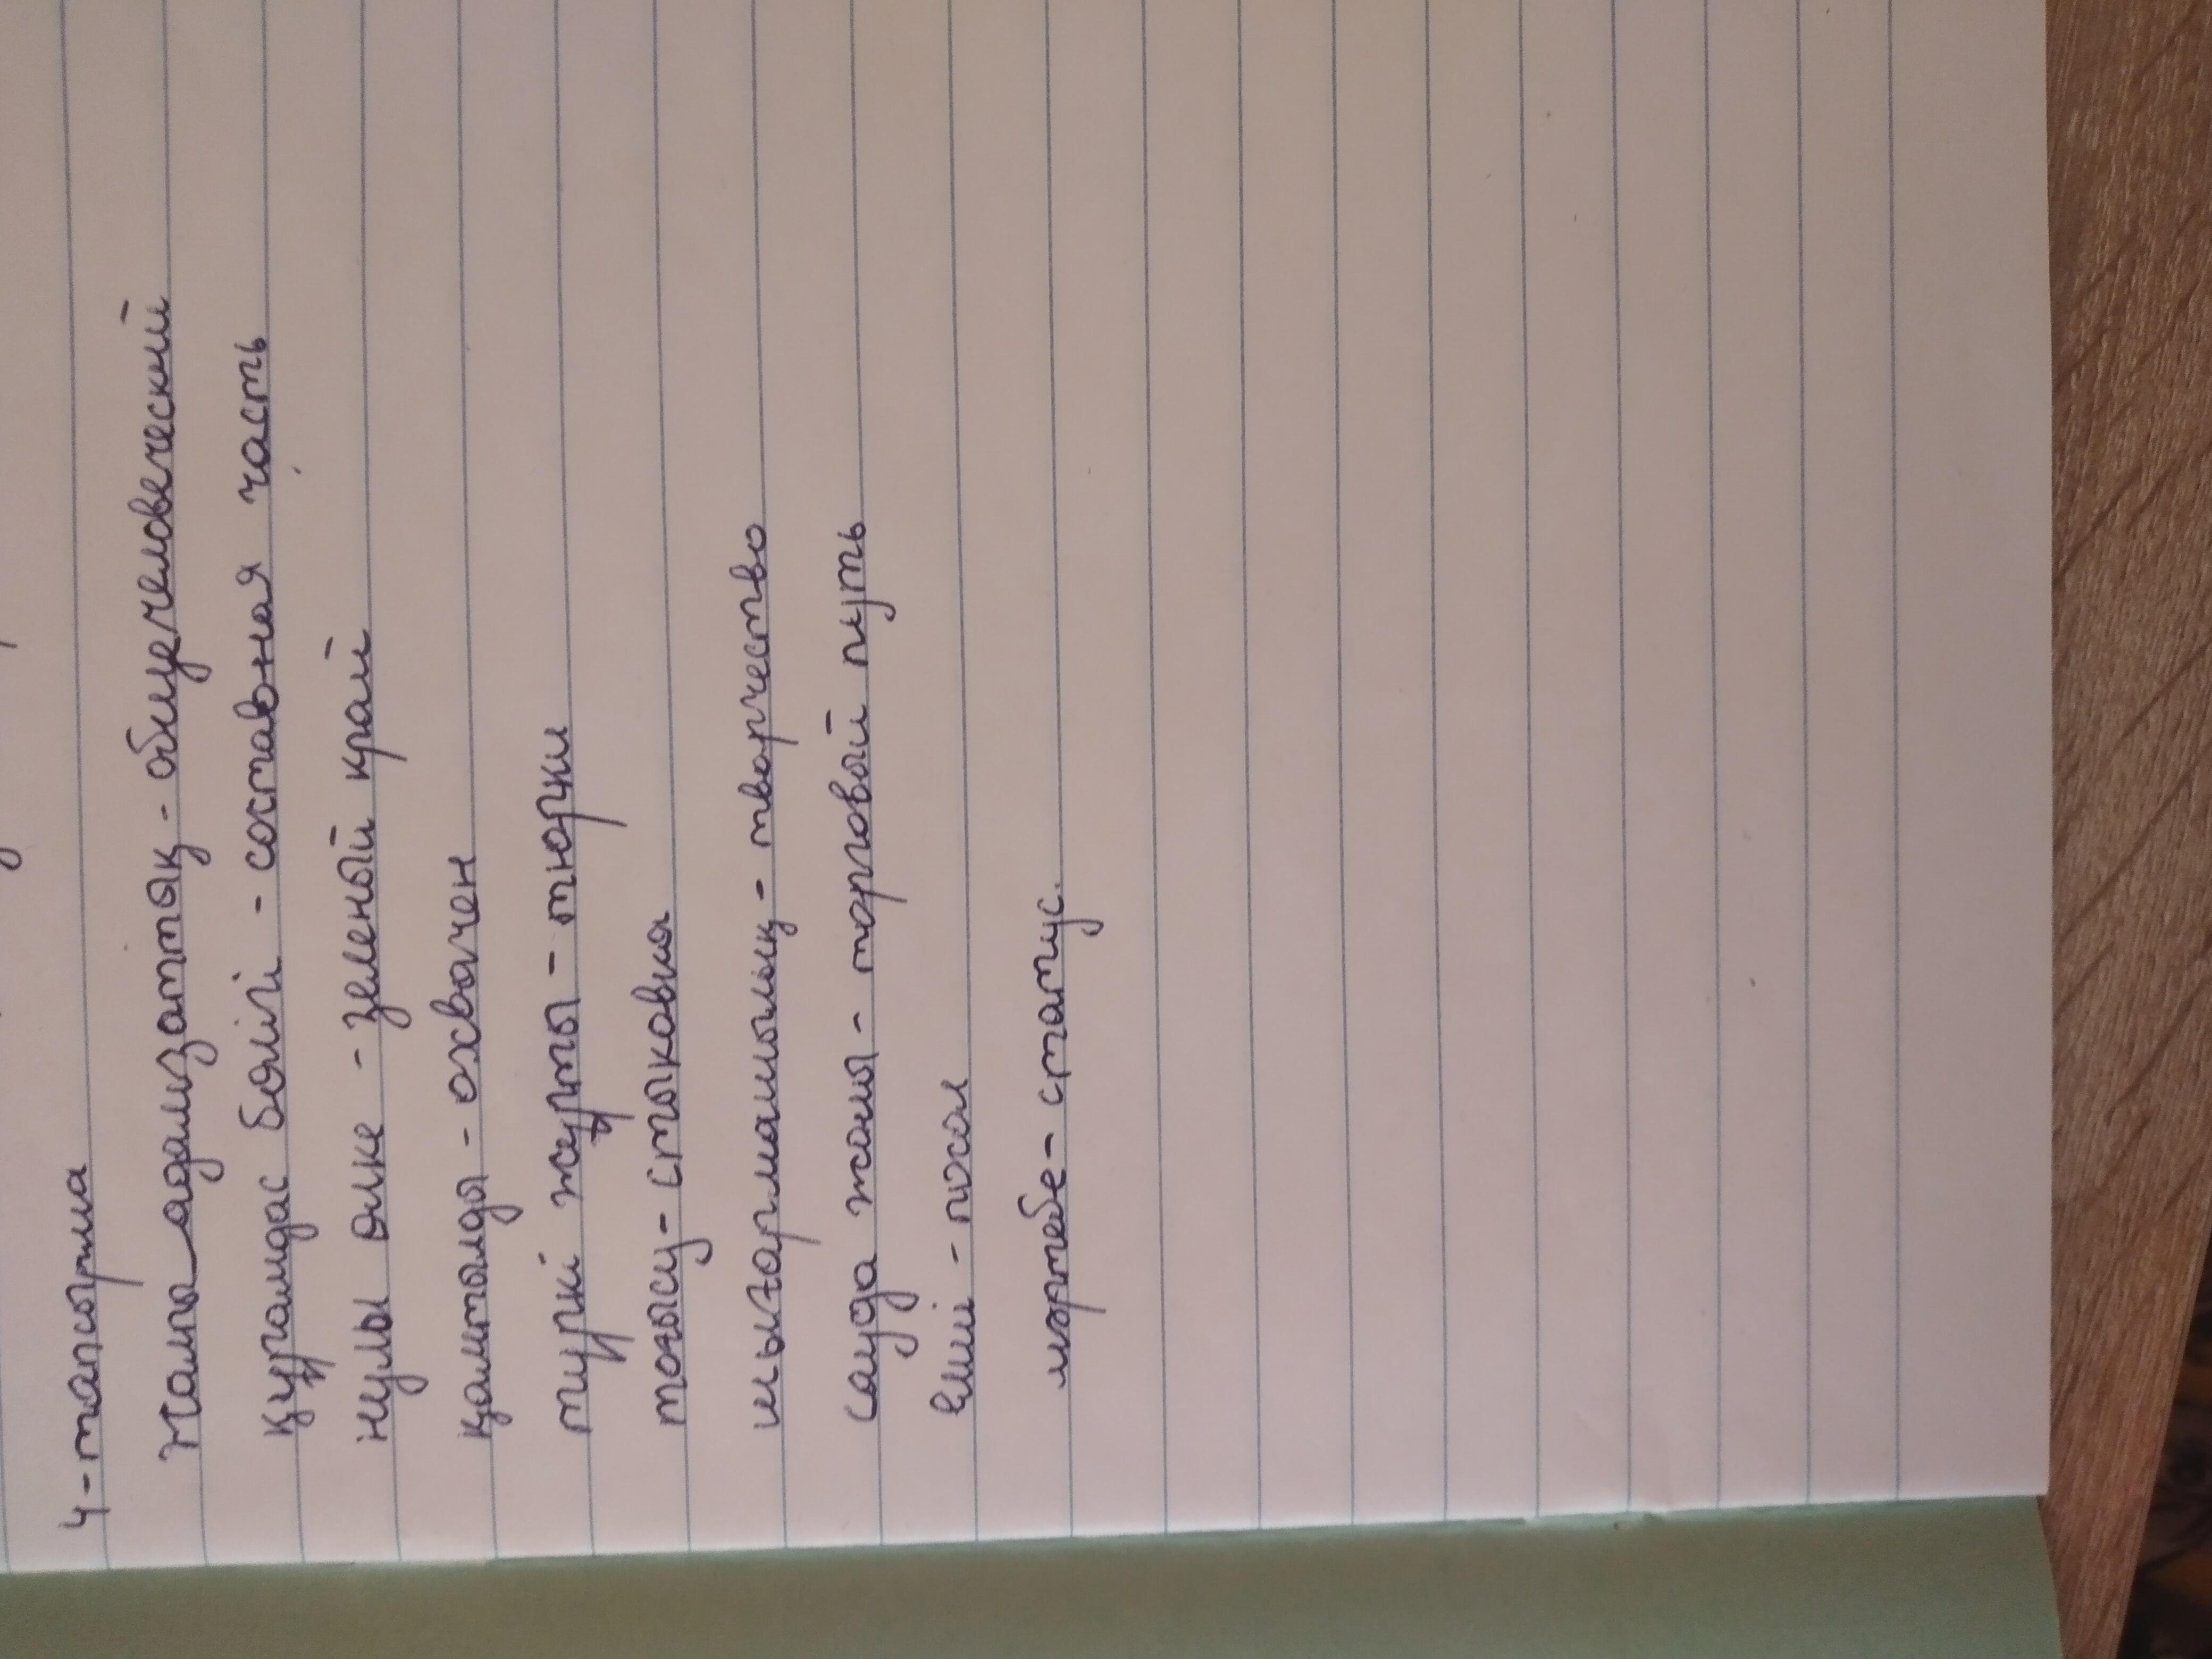 4-тапсырма
Жалпы адамзаттық - общечеловеческий
құрамдас бөлігі - составная часть
нулы өлке - зеленый край
қамтылды - охвачен
түркі жұрты - тюрки
тоғысу - стыковка
шығармашылық - творчество
сауда жолы - торговый путь
Елші - посол
мәртебе - статус.